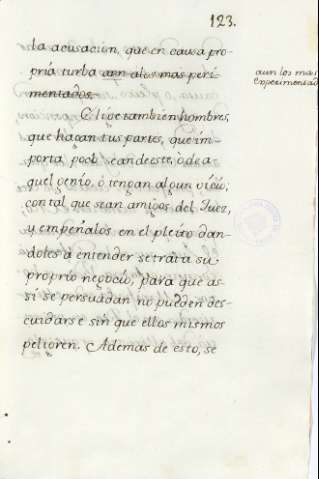 123.
la acusacion, que en causa pro-
pria turba aun alos mas peri
mentados.
aun los mas
experimentad
Elige tambien hombres,
que hagan tus partes, que im-
porta poco sean de este, ò de a-
quel genio, ò tengan algun vicio,
con tal que sean amigos del Juez,
y empeñalos en el pleito dan-
doles a entender se trata su
proprio negocio, para que as-
si se persuadan no pueden des-
cuidarse sin que ellos mismos
peligren. Ademas de esto, se